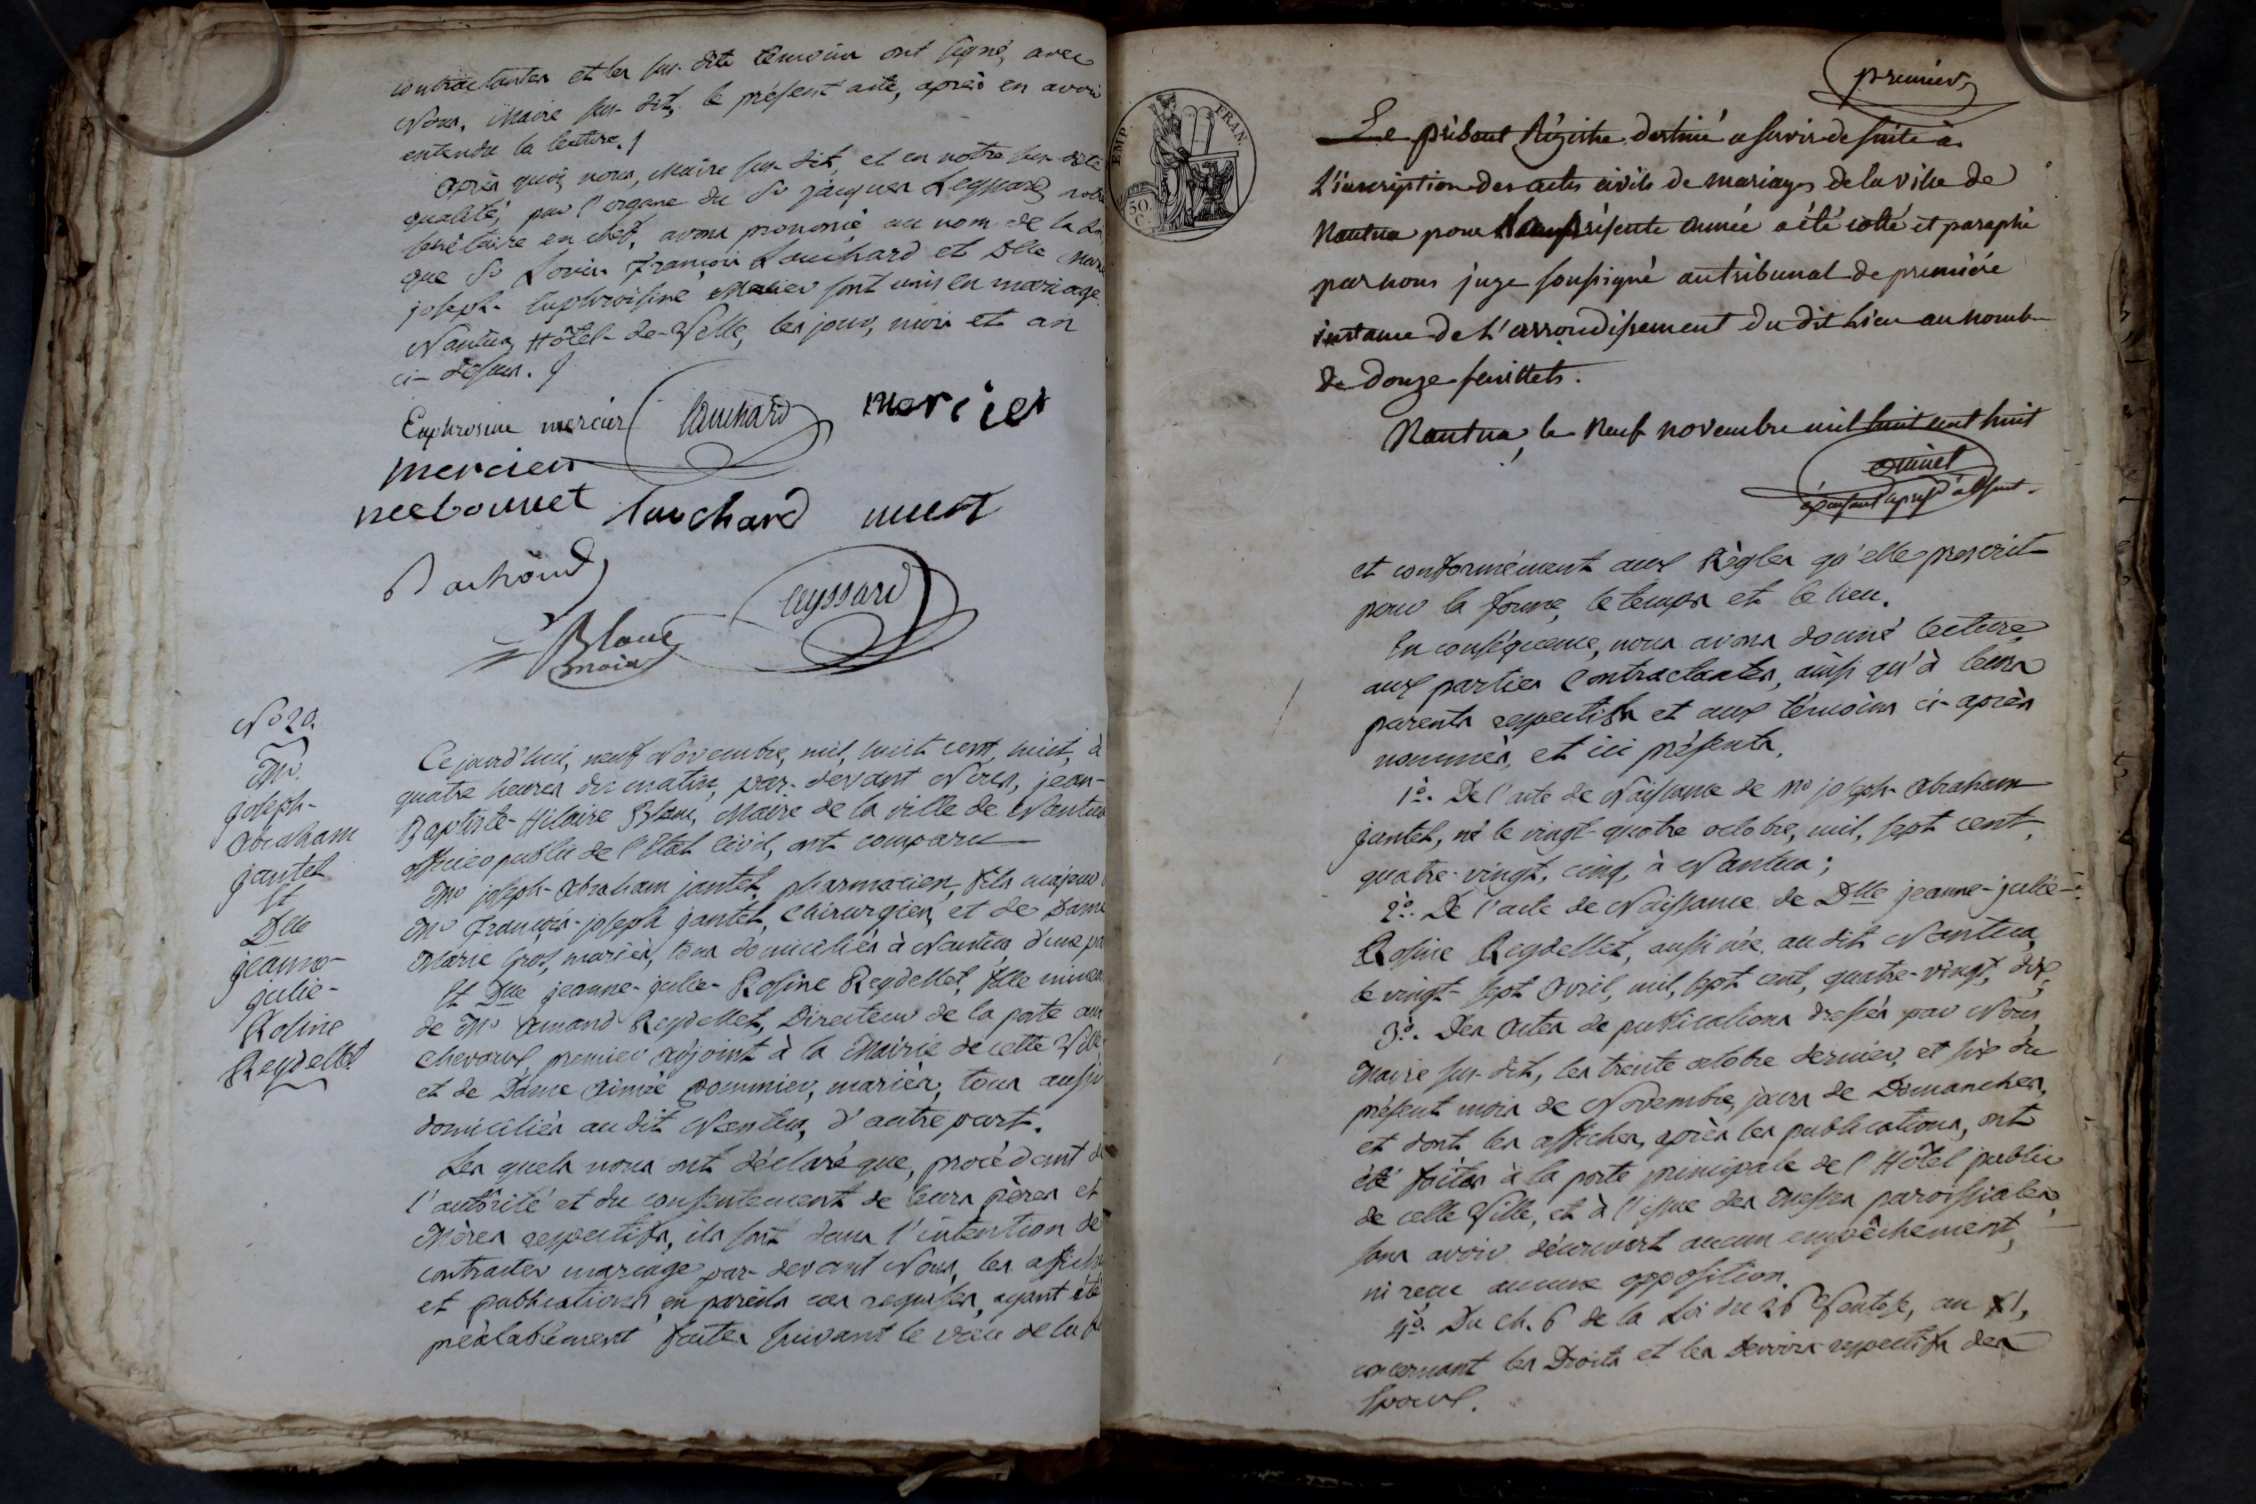 contractantes et les sus-dits témoins ont signé, avec
Nous, Maire sus-dit, le présent acte, après en avoir
entendu la lecture.
Après quoi, nous, Maire sus-dit, et en notre sus-dite
qualité, par l'organe du Sr jacques Leyssard, notre
secrétaire en chef, avons prononcé au nom de la Loi
que Sr Louis François Lauchard et Dlle Marie
joseph-Euphroisine Mercier sont unis en mariage.
Nantua, Hôtel-de-Ville, les jour, mois et an
ci-dessus.
Euphrosine mercier Lauchard mercier
mercier
née bonnet Lauchard
Leyssard
Blanc
maire
No 20.
Mr
joseph-
Abraham
jantet
Et
Dlle
jeanne-
julie-
Rosine
Reydellet
Cejourd'hui, neuf Novembre, mil, huit cent, huit, à
quatre heures du matin, par-devant Nous, jean-
Baptiste-Hilaire Blanc, Maire de la ville de Nantua
officier public de l'Etat Civil, ont comparu
Mr joseph-Abraham jantet, pharmacien, fils majeur
Mr François-joseph jantet, Chirurgien, et de Dame
Marie Gros, mariés, tous domiciliés à Nantua, d'une pa
Et Dlle jeanne-julie-Rosine Reydellet, fille mineure
de Mr Amand Reydellet, Directeur de la poste aux
chevaux, premier adjoint à la Mairie de cette Ville
et de Dame Aimée pommier, mariés, tous aussi
domiciliés au dit Nantua, d'autre part.
Les quels nous ont déclaré que, procédant de
l'autorité et du consentement de leurs pères et
Mères respectifs, ils sont dans l'intention de
contracter mariage par-devant Nous, les affiches
et publications, en pareils cas requises, ayant été
préalablement faites suivant le voeu de la
premier
Le présent Régistre destiné a servir de suite à
L'inscription des actes civils de mariages de la ville de
Nantua pour la présente année a été cotté et paraphé
par nous juge soussigné au tribunal de première
instance de L'arrondissement du dit Lieu au nomb.
de douze feuillets.
Nantua, le Neuf novembre mil huit cent huit
et conformément aux Règles qu'elle prescrit
pour la forme, le temps et le lieu.
En conséquence, nous avons donné lecture,
aux parties Contractantes, ainsi qu'à leurs
parents respectifs et aux témoins ci-après
nommés, et ici présents,
1o. De l'acte de Naissance de Mr joseph-Abraham
jantet, né le vingt-quatre octobre, mil, sept cent,
quatre-vingt, cinq, à Nantua;
2o. De l'acte de Naissance de Dlle jeanne-julie-
Rosine Reydellet, aussi née au dit Nantua,
le vingt-sept Avril, mil, sept cent, quatre-vingt, dix;
3o. Des Actes de publications dressés par Nous,
Maire sus-dit, les trente octobre dernier, et six du
présent mois de Novembre, jours de Dimanches,
et dont les affiches, après les publications, ont
été faites à la porte principale de l'Hôtel public
de cette Ville, et à l'issue des Messes paroissiales,
sans avoir découvert aucun empêchement,
ni reçu aucune opposition.
4o. Du Ch. 6 de la Loi du 26 Ventose, an XI,
concernant les Droits et les Devoirs respectifs des
Epoux.
EMP. FRAN.
50.
C.